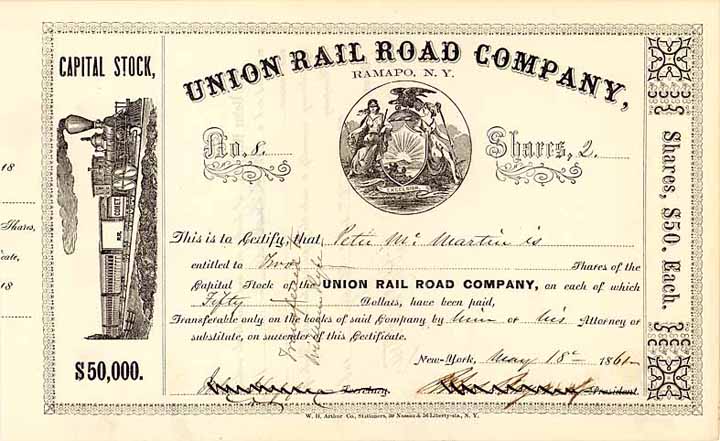 18
Shares,
cate,
18
CAPITAL STOCK,
$50,000.
UNION RAIL ROAD COMPANY,
RAMAPO, N. Y.
No. 8. Shares, 2.
EXCELSIOR
This is to Certify, that Peter Mc Martin is
entitled to Two Shares of the
Capital Stock of the UNION RAIL ROAD COMPANY, on each of which
Fifty Dollars, have been paid,
Transferable only on the books of said Company by him or his Attorney or
substitute, on surrender of this Certificate.
New-York, May 18 1861
Secretary. President.
W. H. Arthur Co., Stationers, 39 Nassau & 56 Liberty-sts., N. Y.
Shares, $50. Each.